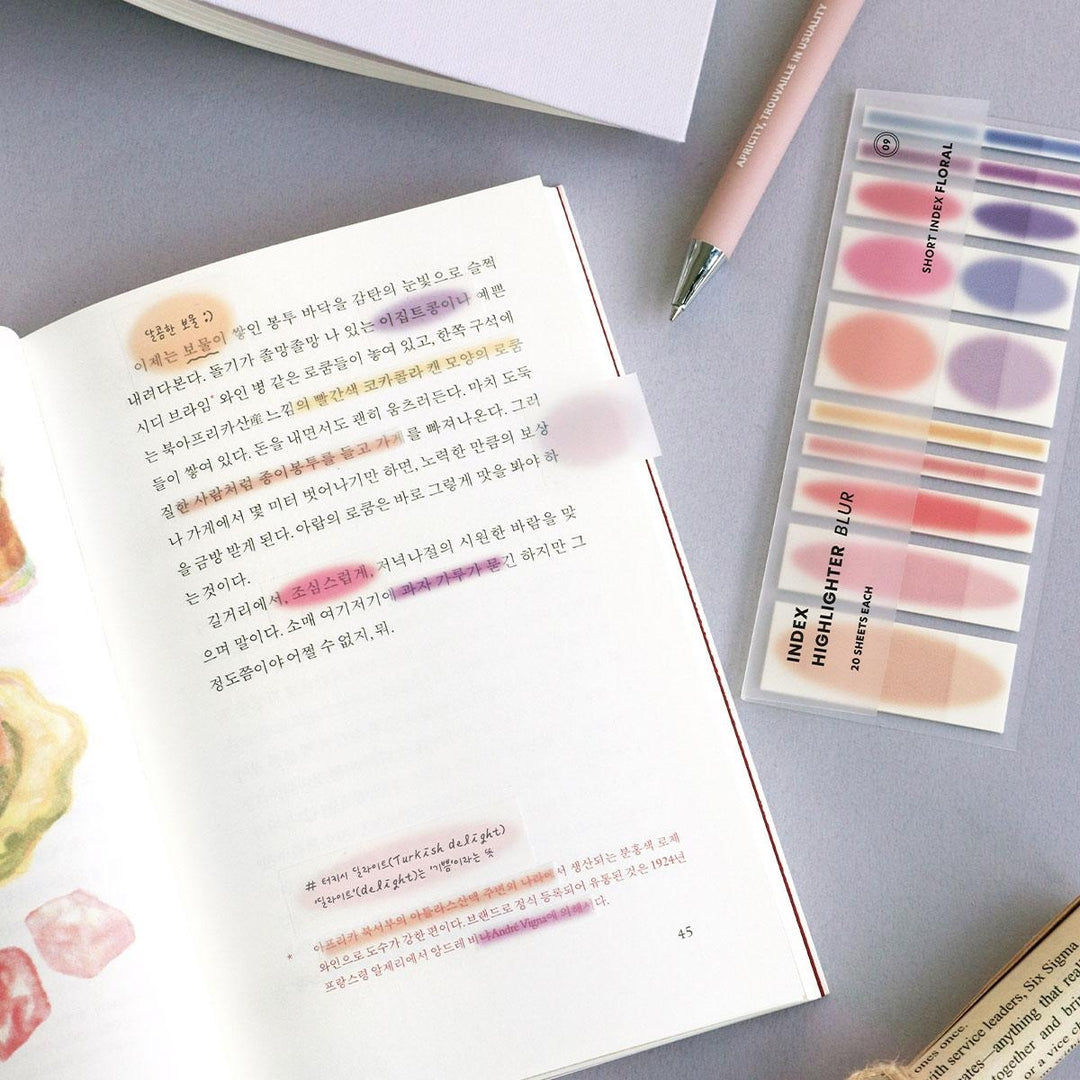 달콤한 보물 :)
이제는 보물이 쌓인 봉투 바닥을 감탄의 눈빛으로 슬쩍
내려다본다. 돌기가 졸망졸망 나 있는 이집트콩이나 예쁜
시디 브라임* 와인 병 같은 로쿰들이 놓여 있고, 한쪽 구석에
는 북아프리카산産 느낌의 빨간색 코카콜라 캔 모양의 로쿰
들이 쌓여 있다. 돈을 내면서도 괜히 움츠러든다. 마치 도둑
질한 사람처럼 종이봉투를 들고 가게를 빠져나온다. 그러
나 가게에서 몇 미터 벗어나기만 하면, 노력한 만큼의 보상
을 금방 받게 된다. 아랍의 로쿰은 바로 그렇게 맛을 봐야 하
는 것이다.
길거리에서, 조심스럽게, 저녁나절의 시원한 바람을 맞
으며 말이다. 소매 여기저기에 과자 가루가 묻긴 하지만 그
정도쯤이야 어쩔 수 없지, 뭐.
# 터키시 딜라이트(Turkish delight)
'딜라이트'(delight)는 '기쁨'이라는 뜻
* 아프리카 북서부의 아틀라스산맥 주변의 나라에서 생산되는 분홍색 로제
와인으로 도수가 강한 편이다. 브랜드로 정식 등록되어 유통된 것은 1924년
프랑스령 알제리에서 앙드레 비냐André Vigna에 의해서다.
45
APRICITY, TROUVAILLE IN USUALITY
09
SHORT INDEX FLORAL
INDEX
HIGHLIGHTER BLUR
20 SHEETS EACH
ones once.
with service leaders, Six Sigma
—anything that
together and
or a vice